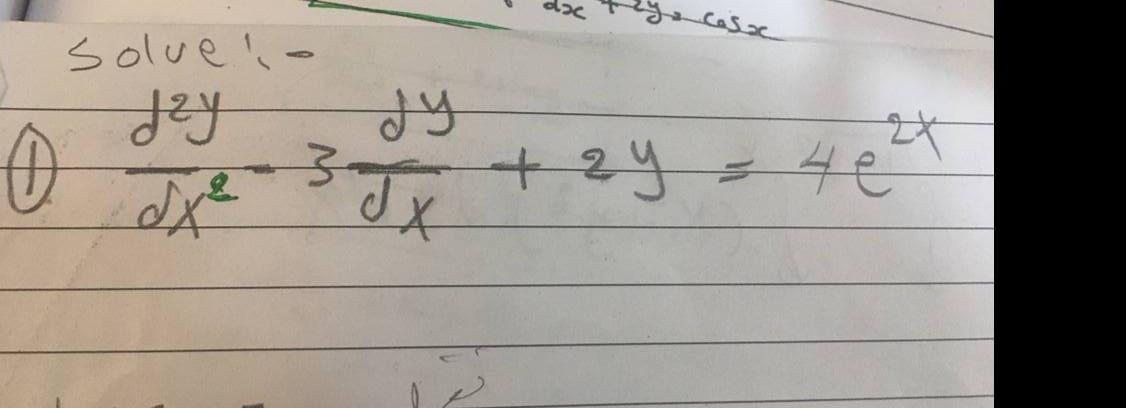 dx + 2y = cosx
Solve:-
① d2y/dx² - 3 dy/dx + 2y = 4e^2x